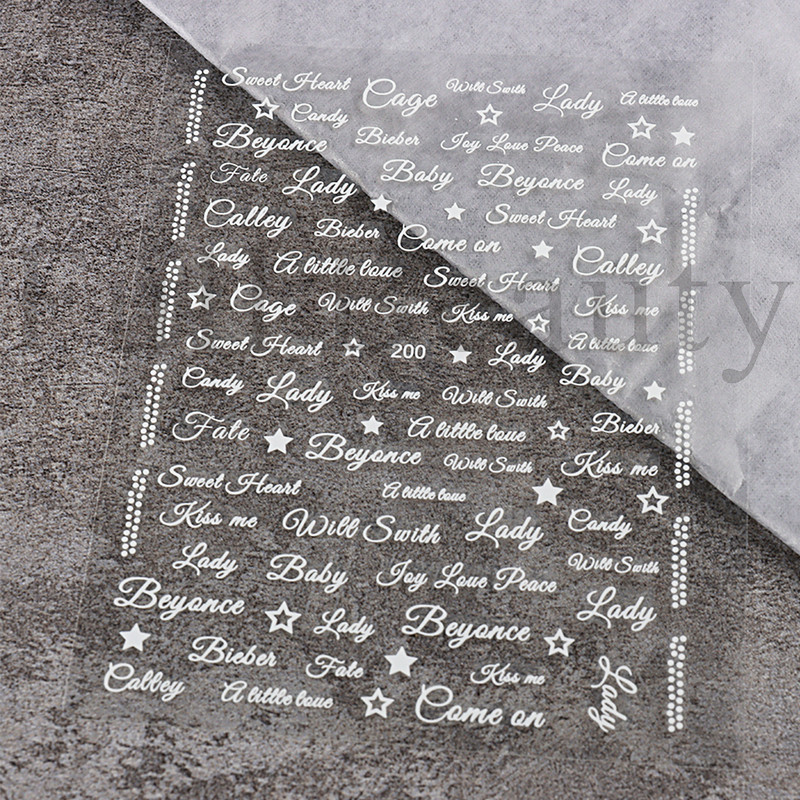 Sweet Heart Cage Will Swith Lady A little loue
Candy
Beyonce Bieber Joy Loue Peace Come on
Fate Lady Baby Beyonce Lady
Calley Bieber Come on Sweet Heart
Lady A little loue Sweet Heart Calley
Cage Will Swith Kiss me Kiss me
auty
Sweet Heart 200 Lady A little loue
Candy Lady Kiss me Will Swith Baby
Fate Beyonce A little loue Bieber
Will Swith Kiss me
Sweet Heart A little loue
Kiss me Will Swith Lady Candy
Lady Baby Joy Loue Peace Will Swith
Beyonce Lady Beyonce Lady
Bieber Fate Kiss me
Calley A little loue Come on Lady